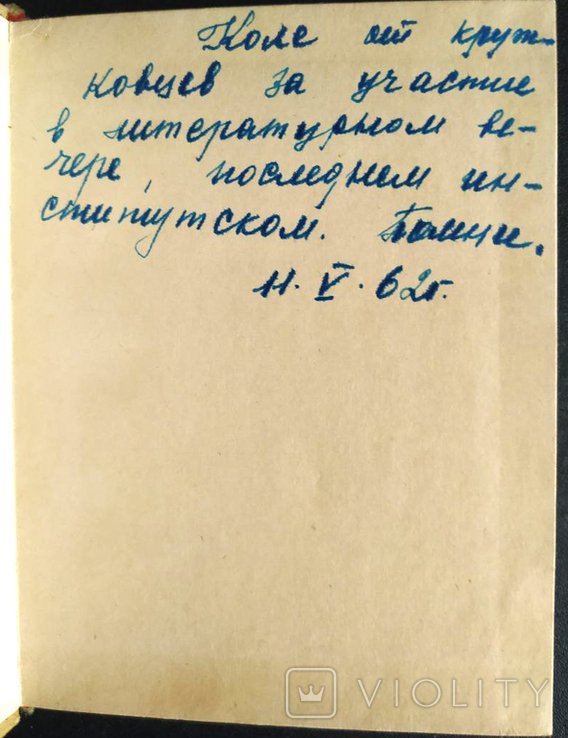 Коле от круж-
ковцев за участие
в литературном ве-
чере, последнем ин-
ститутском. Помни.
11. V. 62г.
VIOLITY